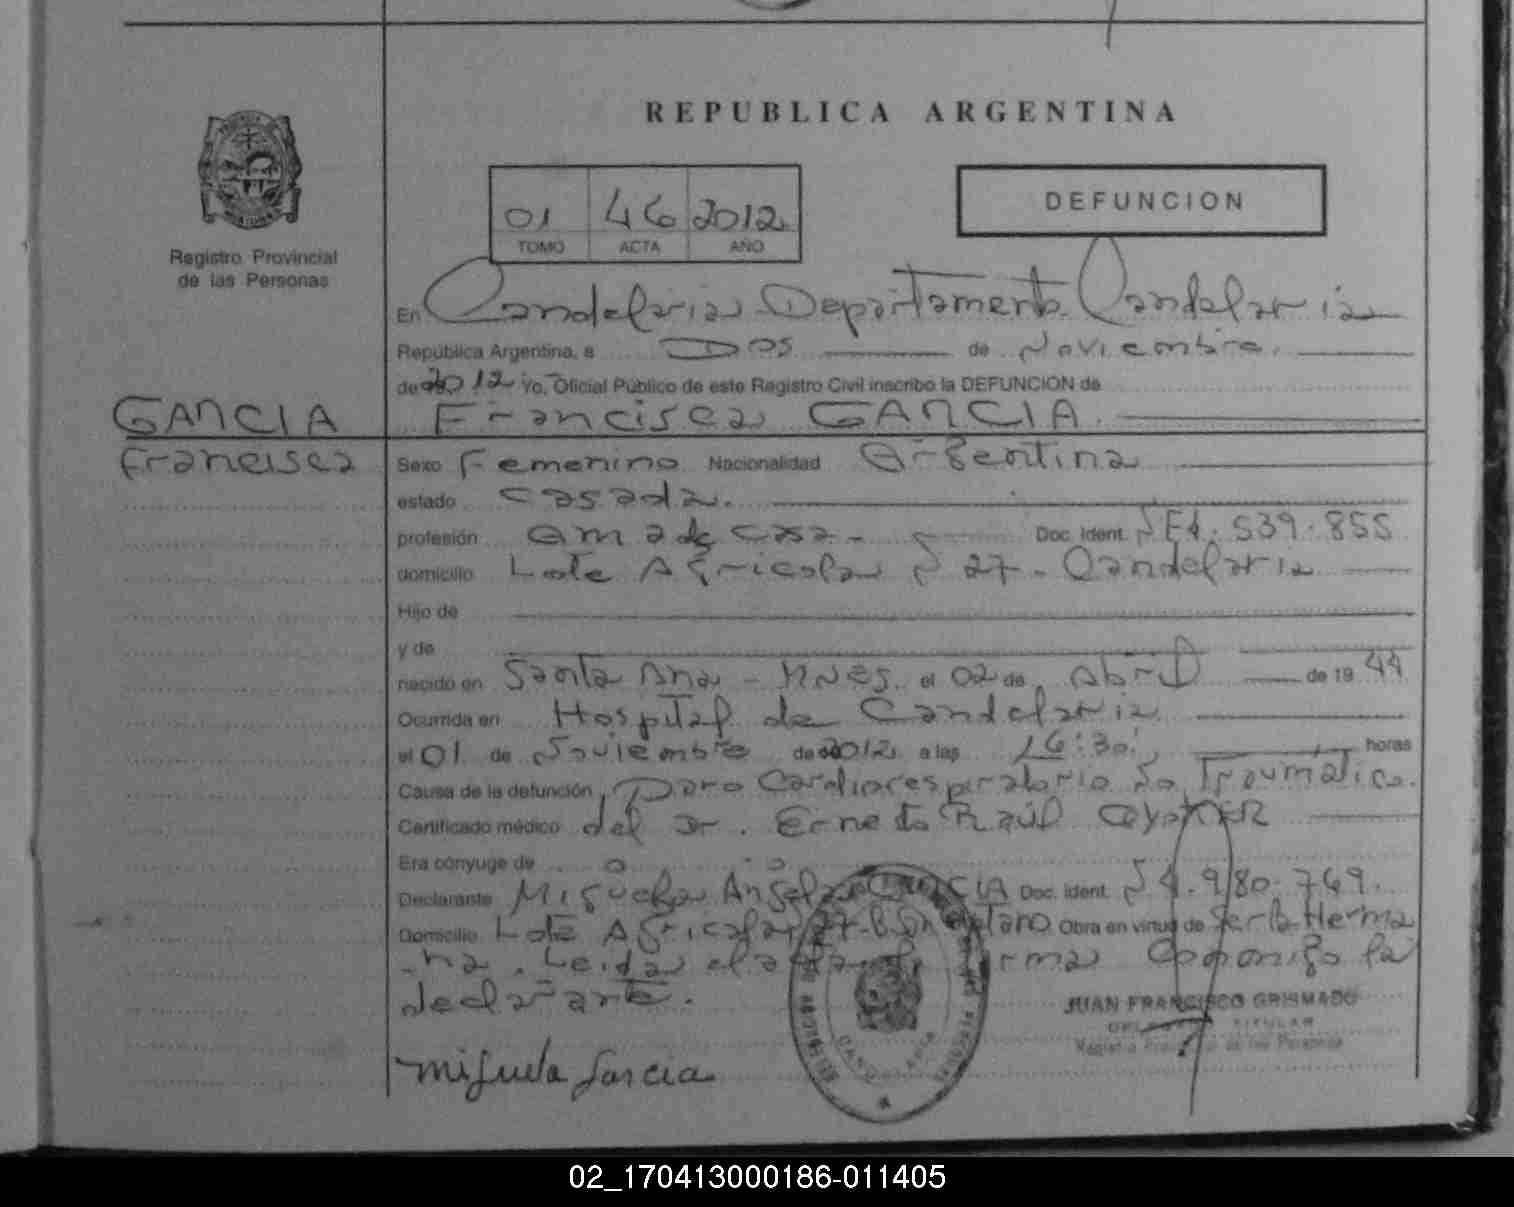 REPUBLICA ARGENTINA
01 46 2012
TOMO ACTA AÑO
DEFUNCION
Registro Provincial
de las Personas
En Candelaria Departamento Candelaria
República Argentina, a Dos de Noviembre.
de 2012 Yo, Oficial Público de este Registro Civil inscribo la DEFUNCION de
GARCIA Francisca GARCIA.
Francisca
Sexo Femenino Nacionalidad Argentina
estado casada.
profesión ama de casa - Doc. Ident. Nº 539.855
domicilio Lote Agricola Nº 27 - Candelaria
Hijo de
y de
nacido en Santa Ana - Mnes. el 02 de Abril de 19 44
Ocurrida en Hospital de Candelaria
el 01 de Noviembre de 2012 a las 16:30 horas
Causa de la defunción Paro Cardiorespiratorio No Traumático.
Certificado médico del Dr. Ernesto Raúl
Era cónyuge de
Declarante Miguela Angela GARCIA Doc. Ident. Nº 4.980.769.
Domicilio Lote Agricola 27 - Obra en virtud de Ser la Herma
-na. Leida el acta la firma Conmigo la
declarante.
JUAN FRANCISCO GRISMADO
TITULAR
Registro Provincial de las Personas
Miguela Garcia
CANDELARIA
02_170413000186-011405